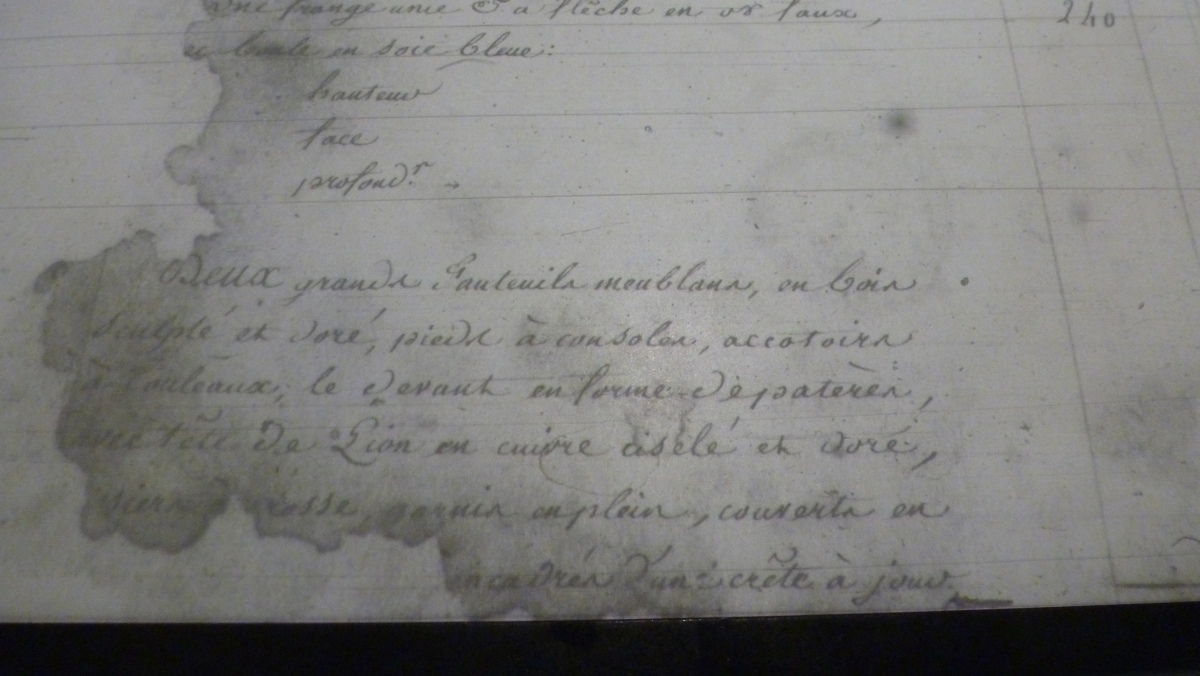 une frange unie & à flèche en or faux, 240
et boule en soie bleue:
hauteur
face
profond.r
Deux grands Fauteuils meublans, en bois
sculpté et doré, pieds à consoles, accotoirs
à rouleaux, le devant en forme de patères,
avec tête de Lion en cuivre ciselé et doré,
crosse, garnis en plein, couverts en
encadrés d'une crête à jour